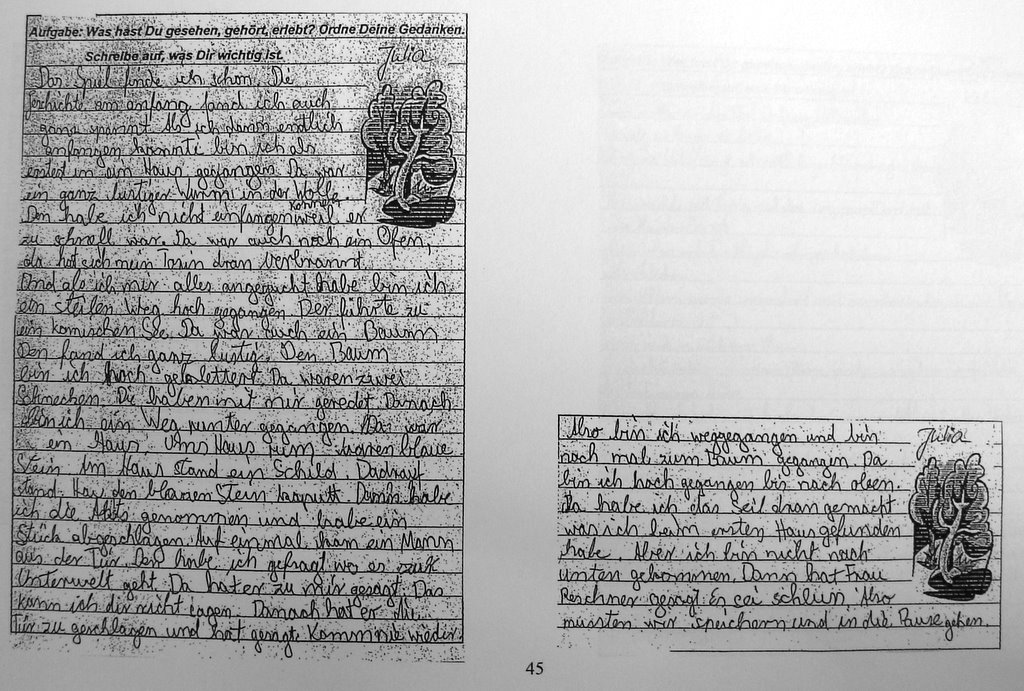 Aufgabe: Was hast Du gesehen, gehört, erlebt? Ordne Deine Gedanken.
Schreibe auf, was Dir wichtig ist.
Julia
Das Spiel finde ich schön. Die
Geschichte am anfang fand ich auch
ganz Als ich dann endlich
anfangen konnte bin ich als
erstes in ein Haus gegangen. Da war
ein ganz lustiger Wurm in der Wolle
Den habe ich nicht einfangen können weil er
zu schnell war. Da war auch noch ein Ofen,
da hat sich mein dran verbrannt
Und als ich mir alles angeguckt habe bin ich
ein steilen Weg hoch gegangen Der führte zu
ein komischen See. Da war auch ein Baum
Den fand ich ganz lustig. Den Baum
bin ich hoch geklettert. Da waren zwei
Schnecken. Die haben mit mir geredet. Danach
bin ich ein Weg runter gegangen. Da war
ein Haus. Ums Haus rum waren blaue
Stein Im Haus stand ein Schild. Dadrauf
stand, Hau den blauen Stein kaputt. Dann habe
ich die genommen und habe ein
Stück abgeschlagen. Auf einmal kam ein Mann
aus der Tür. Den habe ich gefragt wo es zur
Unterwelt geht. Da hat er zu mir gesagt. Das
kann ich dir nicht sagen. Danach hat er die
Tür zu geschlagen und hat gesagt Komm nie wieder.
Julia
Also bin ich weggegangen und bin
noch mal zum Baum gegangen. Da
bin ich hoch gegangen bis nach oben.
da habe ich das Seil dran gemacht
was ich beim ersten Haus gefunden
habe. Aber ich bin nicht nach
unten gekommen. Dann hat Frau
Reschner gesagt: Es sei schluss. Also
mussten wir speichern und in die Pause gehen.
45